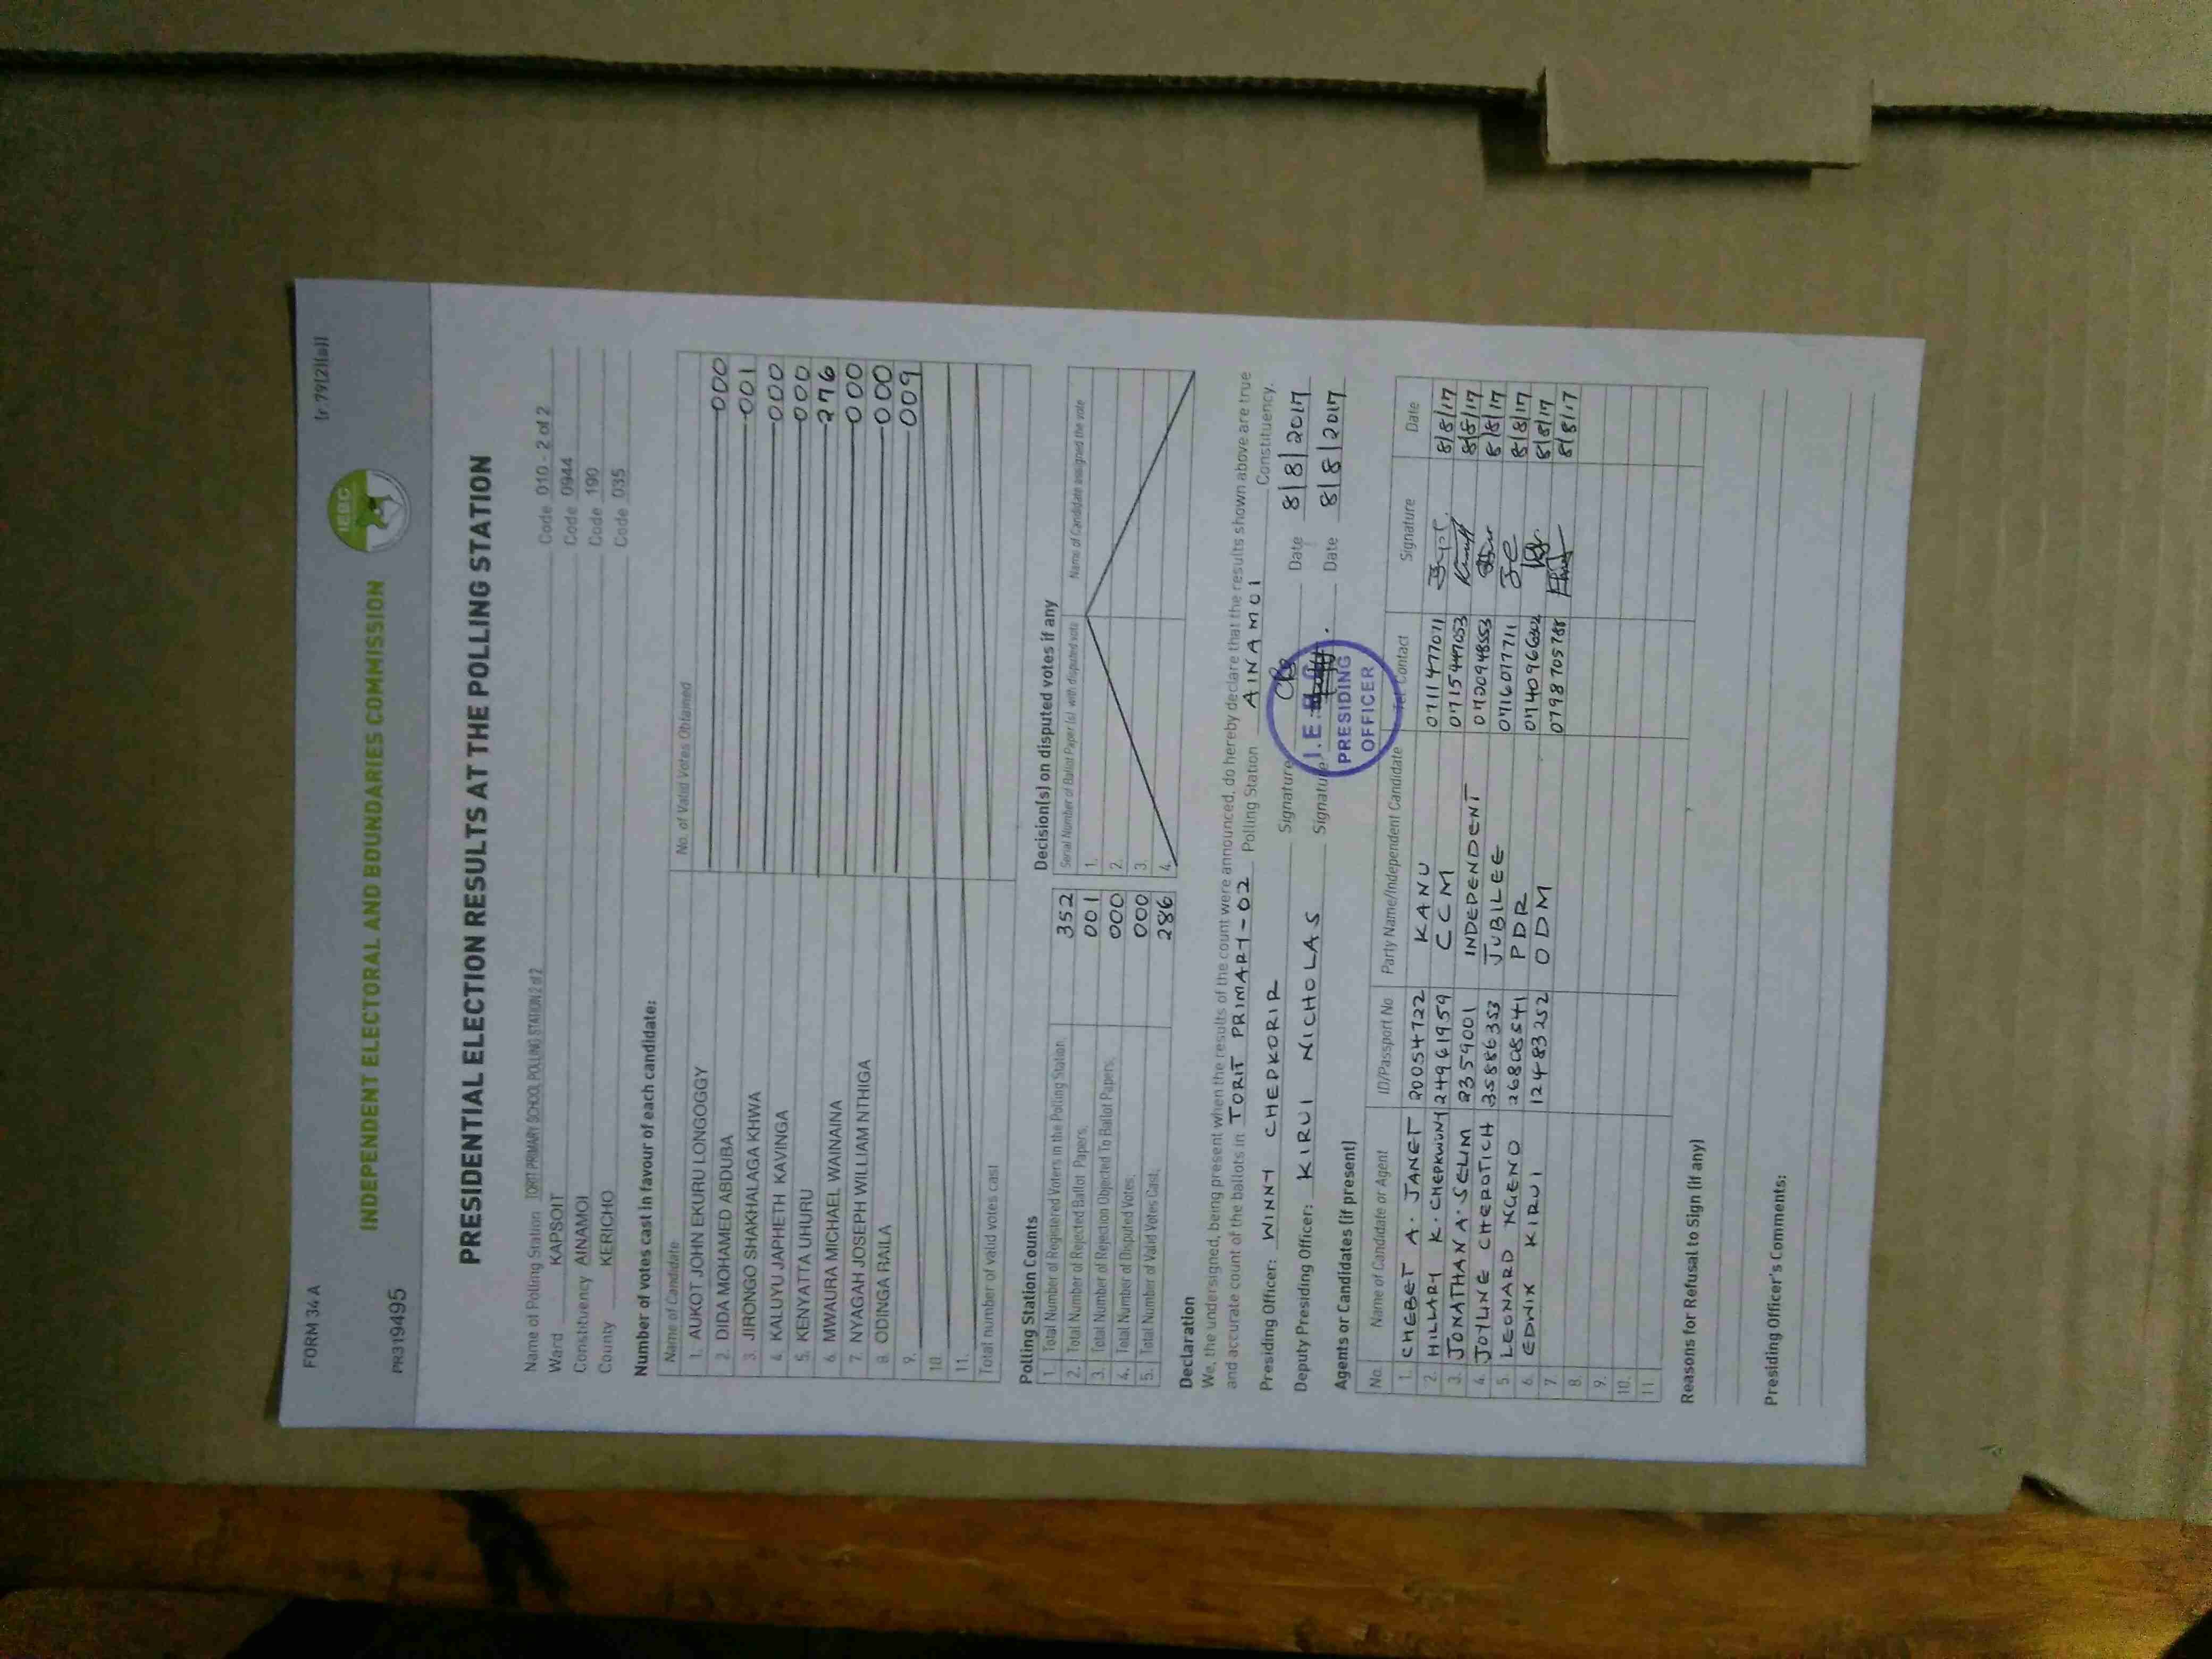 FORM 34 A
[r.79(2)(a)]
INDEPENDENT ELECTORAL AND BOUNDARIES COMMISSION
IEBC
PR319495
PRESIDENTIAL ELECTION RESULTS AT THE POLLING STATION
Name of Polling Station TORIT PRIMARY SCHOOL POLLING STATION 2 of 2 Code 010 - 2 of 2
Ward KAPSOIT Code 0944
Constituency AINAMOI Code 190
County KERICHO Code 035
Number of votes cast in favour of each candidate:
Name of Candidate No. of Valid Votes Obtained
1. AUKOT JOHN EKURU LONGOGGY 000
2. DIDA MOHAMED ABDUBA 001
3. JIRONGO SHAKHALAGA KHWA 000
4. KALUYU JAPHETH KAVINGA 000
5. KENYATTA UHURU 276
6. MWAURA MICHAEL WAINAINA 000
7. NYAGAH JOSEPH WILLIAM NTHIGA 000
8. ODINGA RAILA 009
9.
10.
11.
Total number of valid votes cast
Polling Station Counts
1. Total Number of Registered Voters in the Polling Station 352
2. Total Number of Rejected Ballot Papers. 001
3. Total Number of Rejection Objected To Ballot Papers. 000
4. Total Number of Disputed Votes. 000
5. Total Number of Valid Votes Cast. 286
Decision(s) on disputed votes if any
Serial Number of Ballot Paper (s) with disputed vote Name of Candidate assigned the vote
1.
2.
3.
4.
Declaration
We, the undersigned, being present when the results of the count were announced, do hereby declare that the results shown above are true
and accurate count of the ballots in TORIT PRIMARY-02 Polling Station AINAMOI Constituency.
Presiding Officer: WINNY CHEPKORIR Signature Date 8/8/2017
Deputy Presiding Officer: KIRUI NICHOLAS Signature Date 8/8/2017
PRESIDING
OFFICER
Agents or Candidates (if present)
No. Name of Candidate or Agent ID/Passport No Party Name/Independent Candidate Tel. Contact Signature Date
1. CHEBET A. JANET 20054722 KANU 0711477011 8/8/17
2. HILLARY K. CHEPKWONY 24961959 CCM 0715447053 8/8/17
3. JONATHAN A. SELIM 8359001 INDEPENDENT 0720948553 8/8/17
4. JOYLINE CHEROTICH 35886353 JUBILEE 0716077711 8/8/17
5. LEONARD NGENO 26808541 PDR 8/8/17
6. EDWIK KIRUI 12483252 ODM 0798705788 8/8/17
7.
8.
9.
10.
11.
Reasons for Refusal to Sign (if any)
Presiding Officer's Comments: